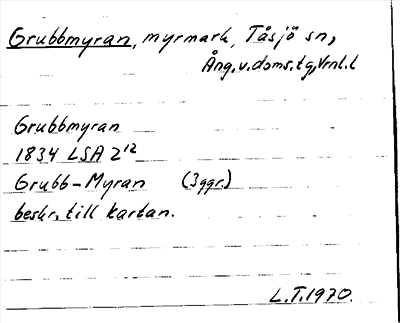 Grubbmyran, myrmark, Tåsjö sn,
Ång.v.doms.tg, Vrnl.l
Grubbmyran
1834 LSA Z¹²
Grubb-Myran (3ggr.)
beskr. till kartan.
L.T.1970.